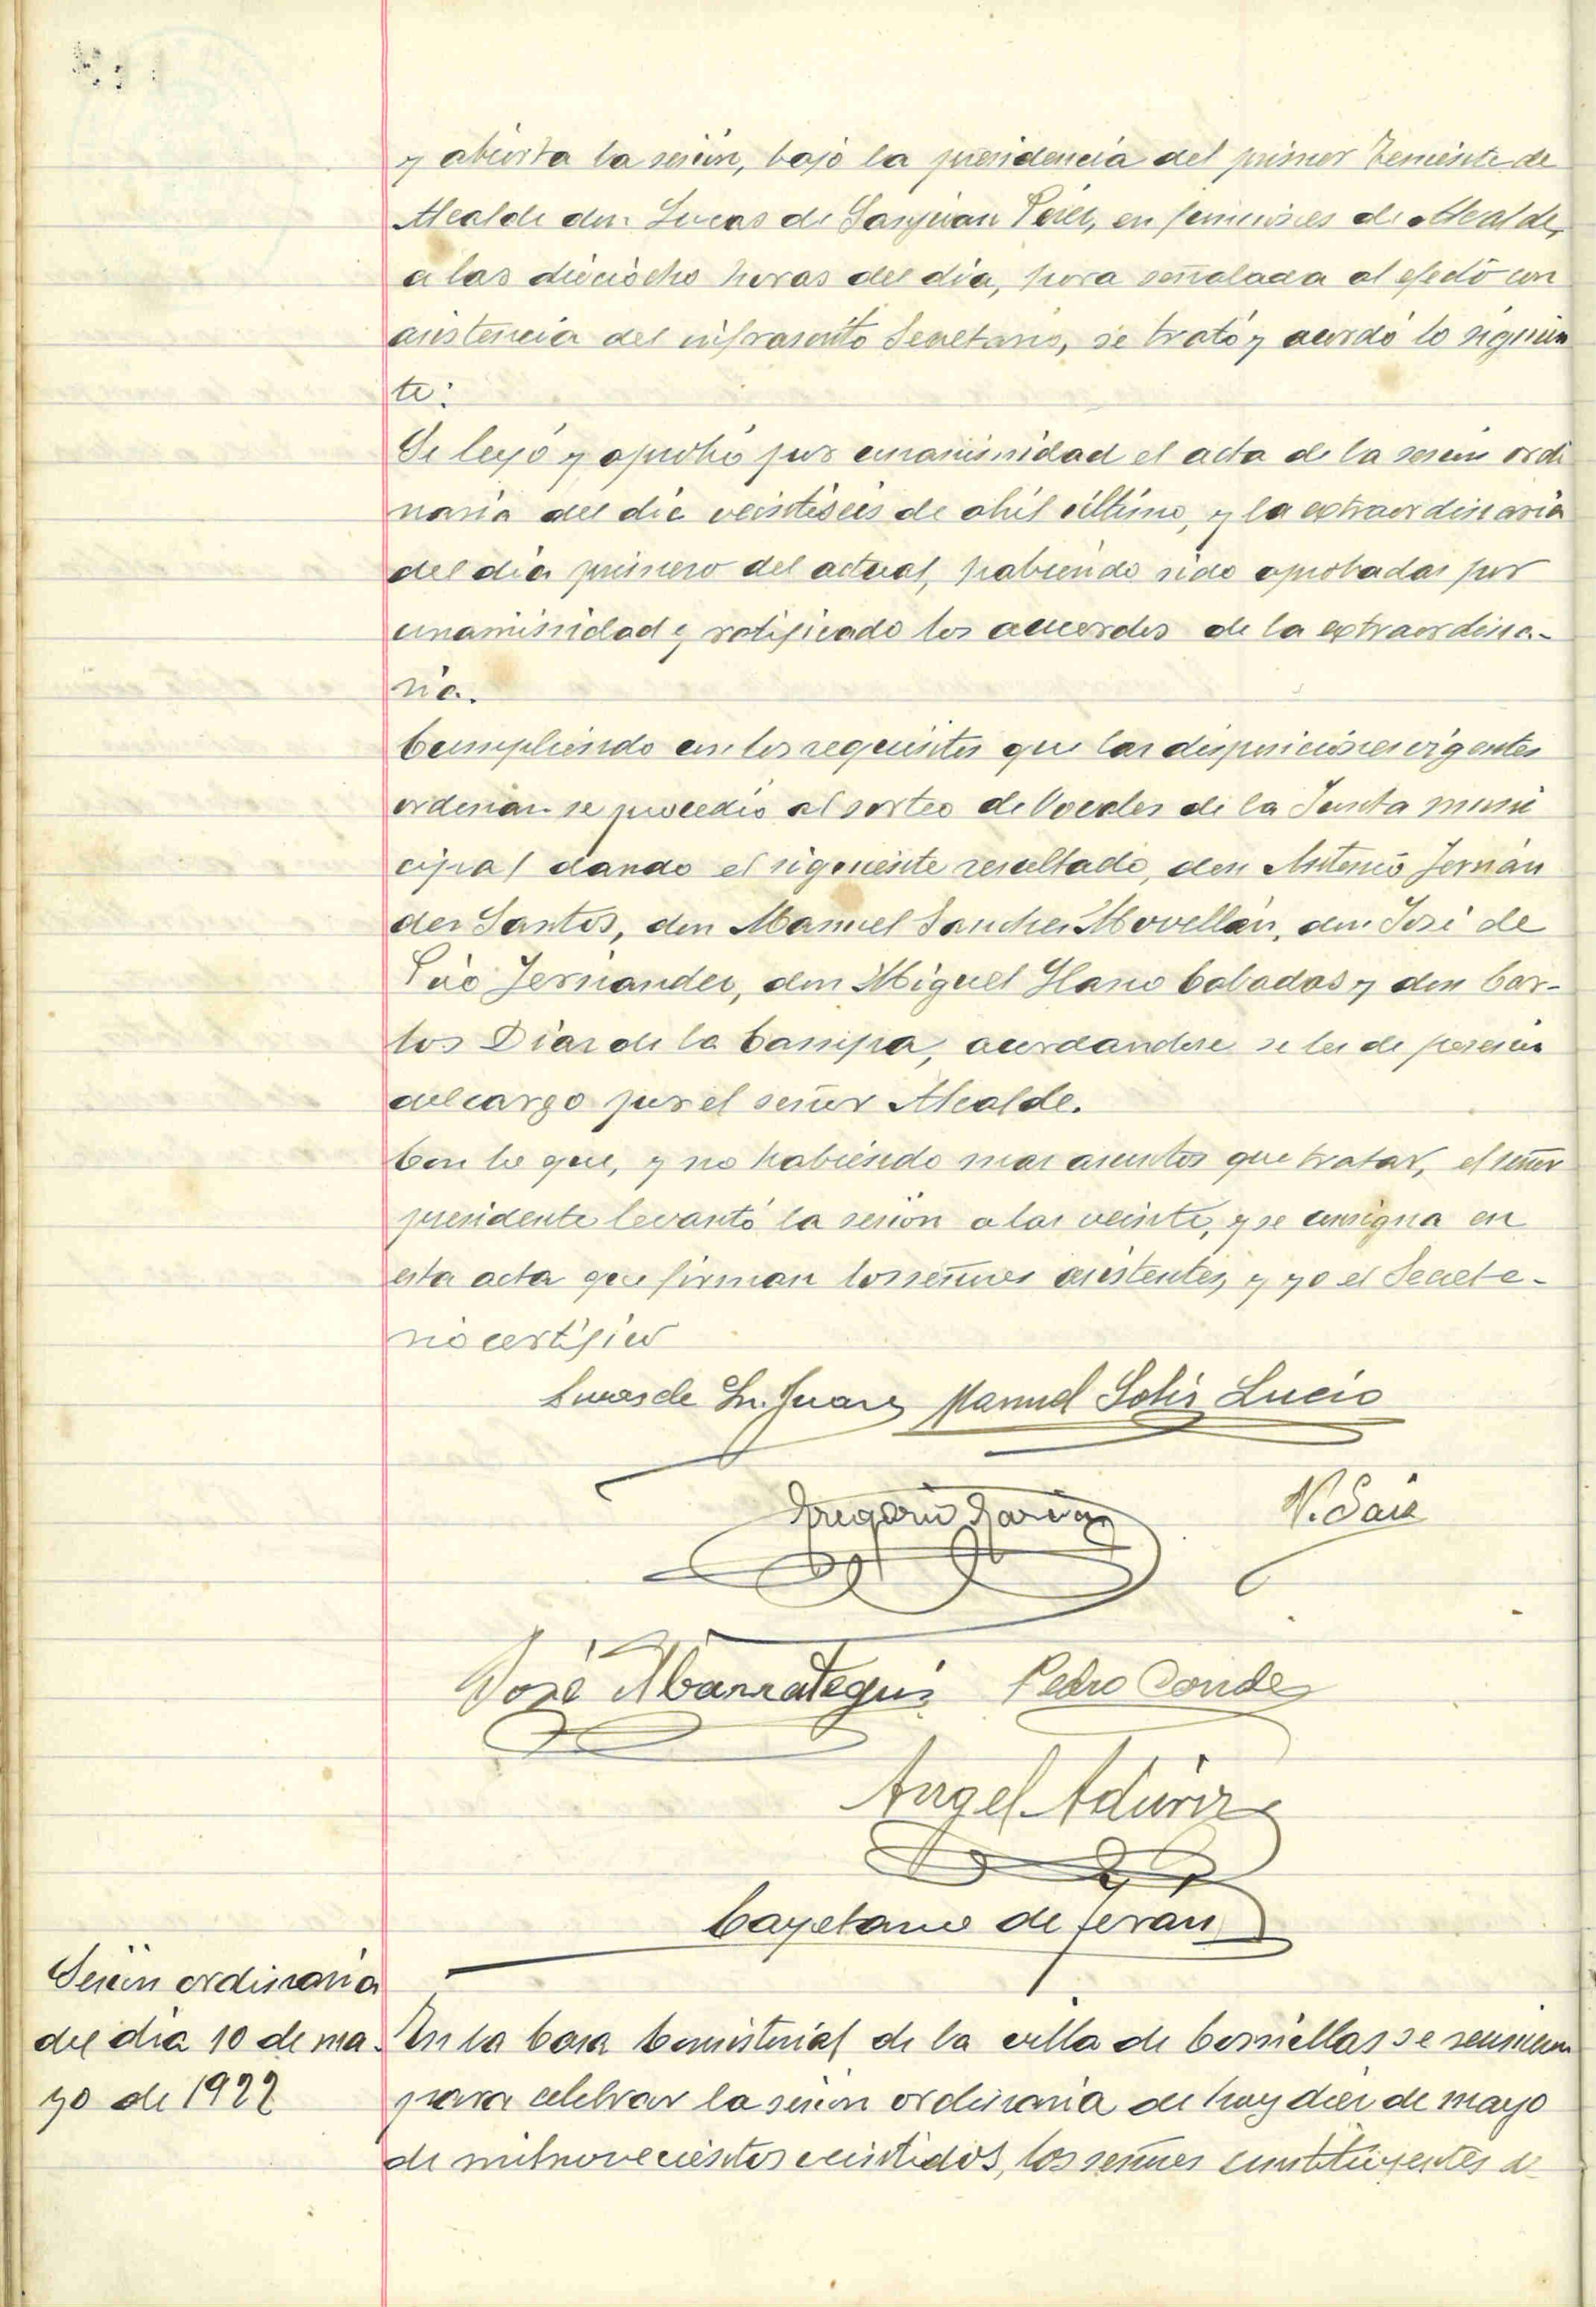 y abierta la sesión, bajo la presidencia del primer Teniente de
Alcalde don Lucas de Sanjuan Pérez, en funciones de Alcalde,
a las dieciocho horas del día, hora señalada al efecto con
asistencia del infrascrito Secretario, se trató y acordó lo siguien
te:
Se leyó y aprobó por unanimidad el acta de la sesión ordi
naria del dia veintiseis de abril último, y la extraordinaria
del día primero del actual, habiendo sido aprobadas por
unanimidad y ratificado los acuerdos de la extraordina-
ria.
Cumpliendo con los requisitos que las disposiciones vigentes
ordenan se procedió al sorteo de Vocales de la Junta muni
cipal dando el siguiente resultado, don Antonio Fernán
dez Santos, don Manuel Sanchez Movellán, don José de
Pío Fernandez, don Miguel Llano Cobadas y don Car-
los Díaz de la Campa, acordandose se les de posesión
del cargo por el señor Alcalde.
Con lo que, y no habiendo mas asuntos que tratar, el señor
presidente levantó la sesión a las veinte, y se consigna en
esta acta que firman los señores asistentes, y yo el Secreta-
rio certifico
Lucas de Sn. Juan Manuel Solís Lucio
Gregorio García N. Saiz
José Abarrategui Pedro Conde
Angel Adúriz
Cayetano de Terán
Sesión ordinaria
del día 10 de ma-
yo de 1922
En la Casa Consistorial de la villa de Comillas se reunieron
para celebrar la sesión ordinaria de hoy diez de mayo
de mil novecientos veintidós, los señores constituyentes de